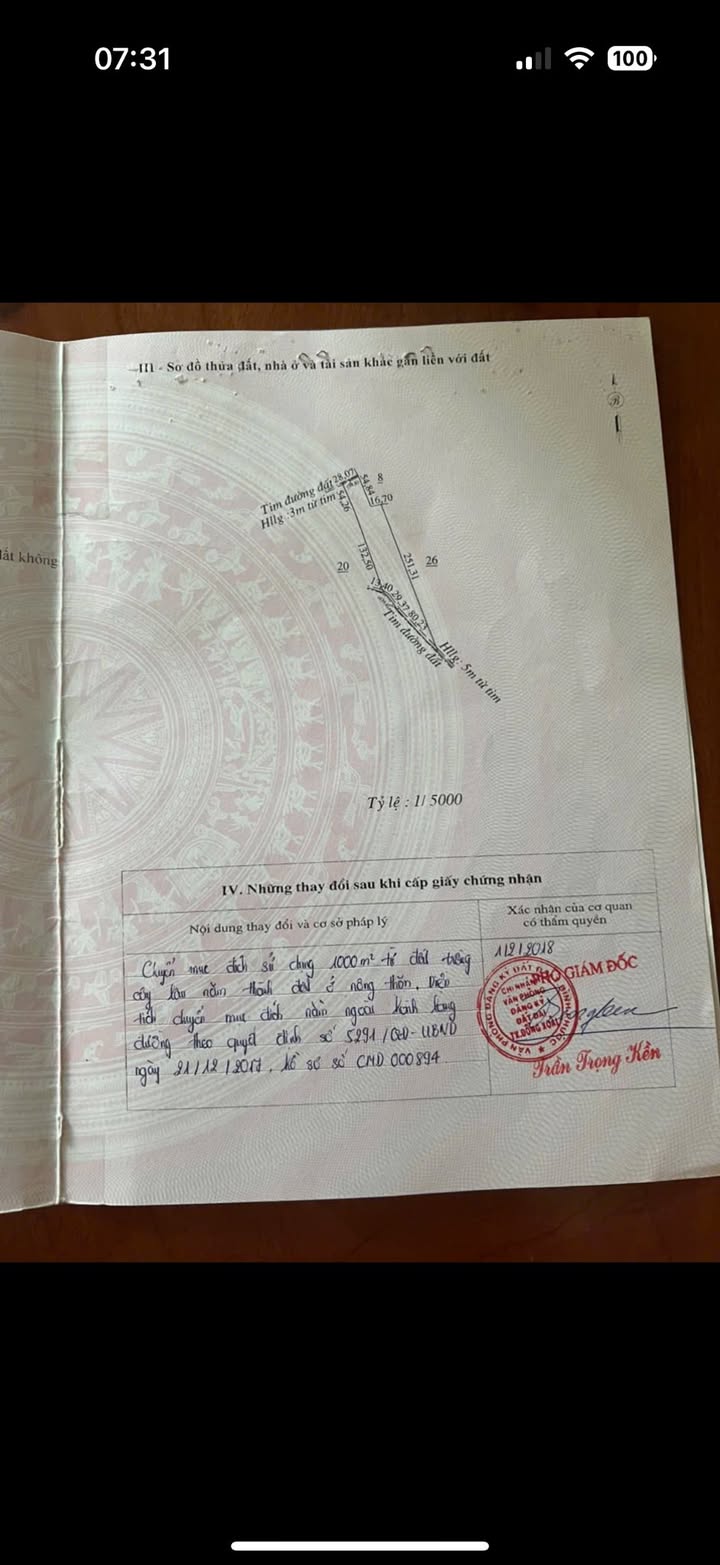 07:31
100
III - Sơ đồ thửa đất, nhà ở và tài sản khác gắn liền với đất
B
đất không
Tim đường đất
Hllg :3m từ tim
28,07
8
54,84
16,70
54,26
132,50
251,31
20
26
13,40
29,37
80,23
Tim đường đất
Hllg. 5m từ tim
Tỷ lệ : 1/ 5000
IV. Những thay đổi sau khi cấp giấy chứng nhận
Nội dung thay đổi và cơ sở pháp lý
Xác nhận của cơ quan
có thẩm quyền
Chuyển mục đích sử dụng 1000m² từ đất trồng
cây lâu năm thành đất ở nông thôn. Diện
tích chuyển mục đích nằm ngoài hành lang
đường theo quyết định số 5291/QĐ-UBND
ngày 21/12/2017. hồ sơ số CMD 000894
11212018
PHÓ GIÁM ĐỐC
VĂN PHÒNG ĐĂNG KÝ ĐẤT ĐAI
BÌNH PHƯỚC
CHI NHÁNH
VĂN PHÒNG
ĐĂNG KÝ
ĐẤT ĐAI
Trần Trọng Kền